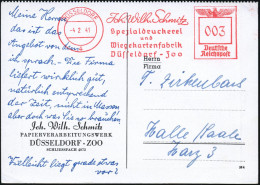 DÜSSELDORF
-4.2.41
Joh. Wilh. Schmitz
Spezialdruckerei
und
Wiegekartenfabrik
Düsseldorf-Zoo
003
Deutsche
Reichspost
Meine Herren,
das ist das
Angebot von dem
ich sprach. Die Firma
liefert wirklich gut,
natürlich entsprechend
der Zeit, nicht in Massen
aber doch was Sie so brauchen
Joh. Wilh. Schmitz
PAPIERVERARBEITUNGSWERK
DÜSSELDORF-ZOO
Vielleicht liegt grade etwas
vor?
Herrn
Firma
Halle/Saale
Harz 3